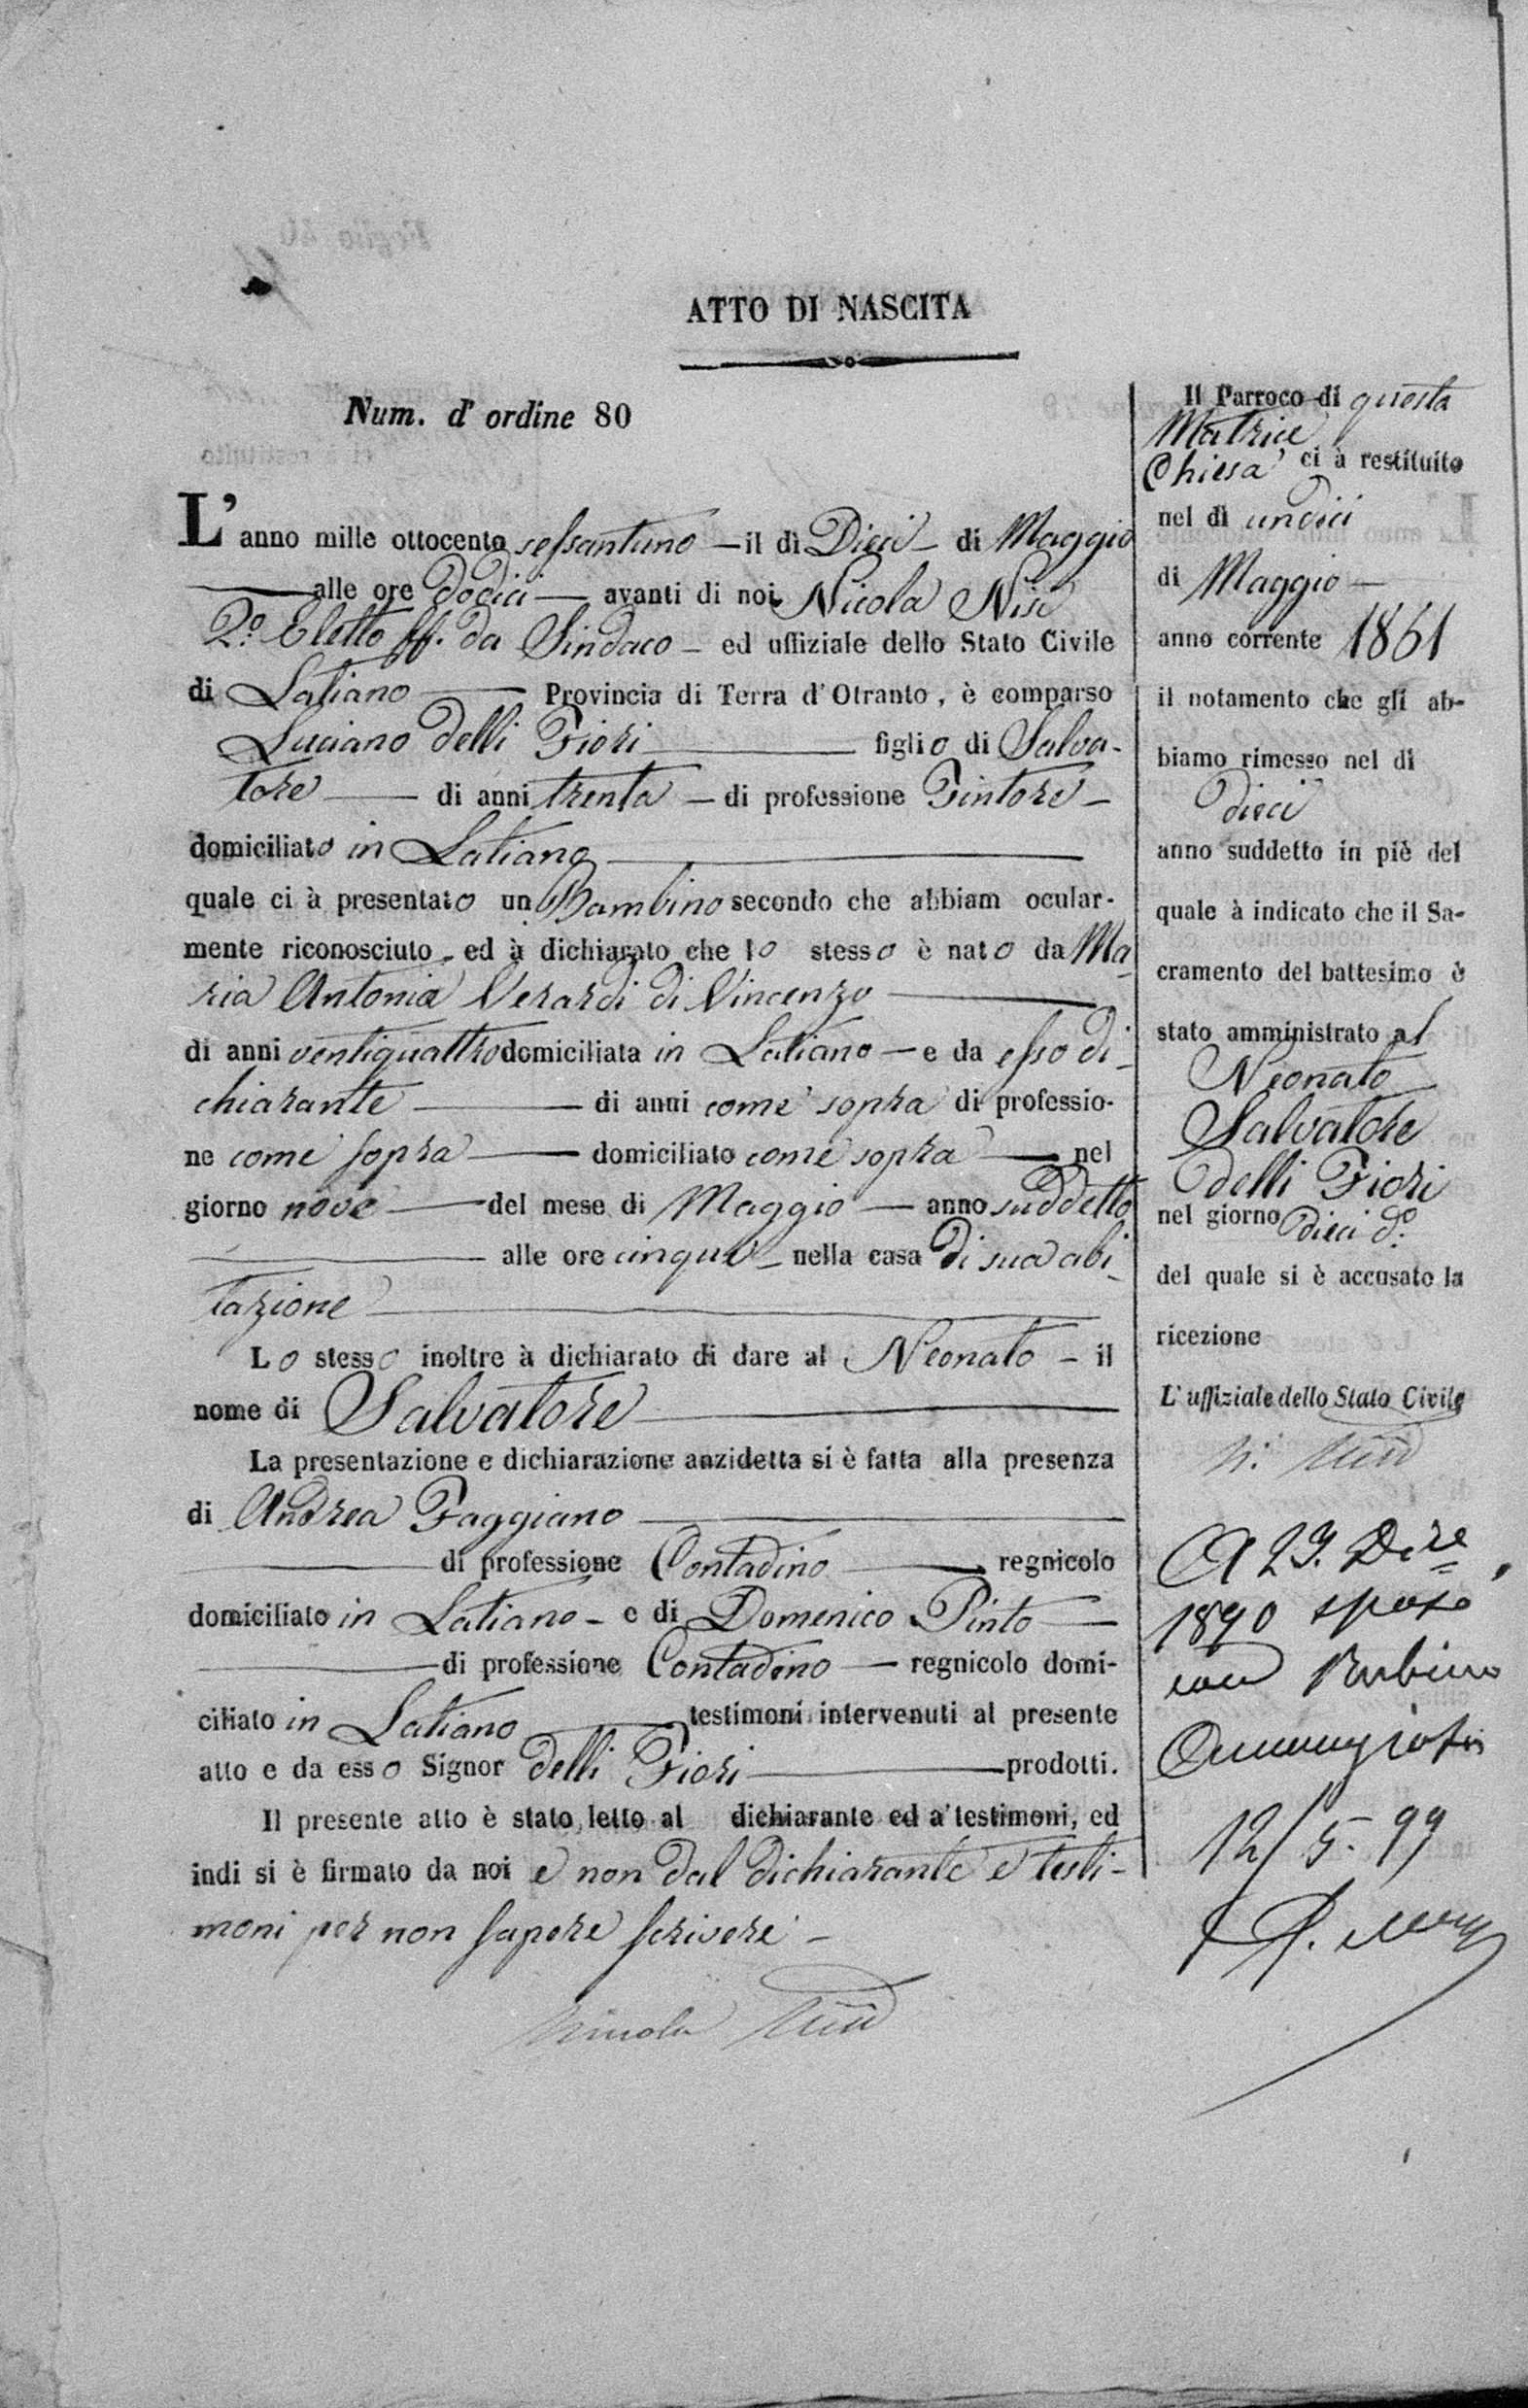 ATTO DI NASCITA
Num. d' ordine 80
L' anno mille ottocento sessantuno — il dì Dieci — di Maggio
— alle ore dodici — avanti di noi Nicola Nisi
2.º Eletto ff. da Sindaco — ed uffiziale dello Stato Civile
di Latiano — Provincia di Terra d'Otranto, è comparso
Luciano Delli Fiori — figlio di Salva-
tore — di anni trenta — di professione Tintore —
domiciliato in Latiano —
quale ci à presentato un Bambino secondo che abbiam ocular-
mente riconosciuto, ed à dichiarato che lo stesso è nato da Ma-
ria Antonia Verardi di Vincenzo —
di anni ventiquattro domiciliata in Latiano — e da esso di-
chiarante — di anni come sopra di professio-
ne come sopra — domiciliato come sopra — nel
giorno nove — del mese di Maggio — anno suddetto
— alle ore cinque — nella casa di sua abi-
tazione —
Lo stesso inoltre à dichiarato di dare al Neonato — il
nome di Salvatore —
La presentazione e dichiarazione anzidetta si è fatta alla presenza
di Andrea Faggiano —
— di professione Contadino — regnicolo
domiciliato in Latiano — e di Domenico Pinto —
— di professione Contadino — regnicolo domi-
ciliato in Latiano — testimoni intervenuti al presente
atto e da esso Signor Delli Fiori — prodotti.
Il presente atto è stato letto al dichiarante ed a' testimoni, ed
indi si è firmato da noi e non dal dichiarante e testi-
moni per non sapere scrivere —
Nicola Nisi
Il Parroco di questa
Matrice
Chiesa ci à restituito
nel dì undici
di Maggio —
anno corrente 1861
il notamento che gli ab-
biamo rimesso nel dì
dieci
anno suddetto in piè del
quale à indicato che il Sa-
cramento del battesimo è
stato amministrato al
Neonato
Salvatore
Delli Fiori
nel giorno dieci d.º
del quale si è accusato la
ricezione
L' uffiziale dello Stato Civile
N. Nisi
A 29. D.re
1890 sposò
con Rubino
12/5.99